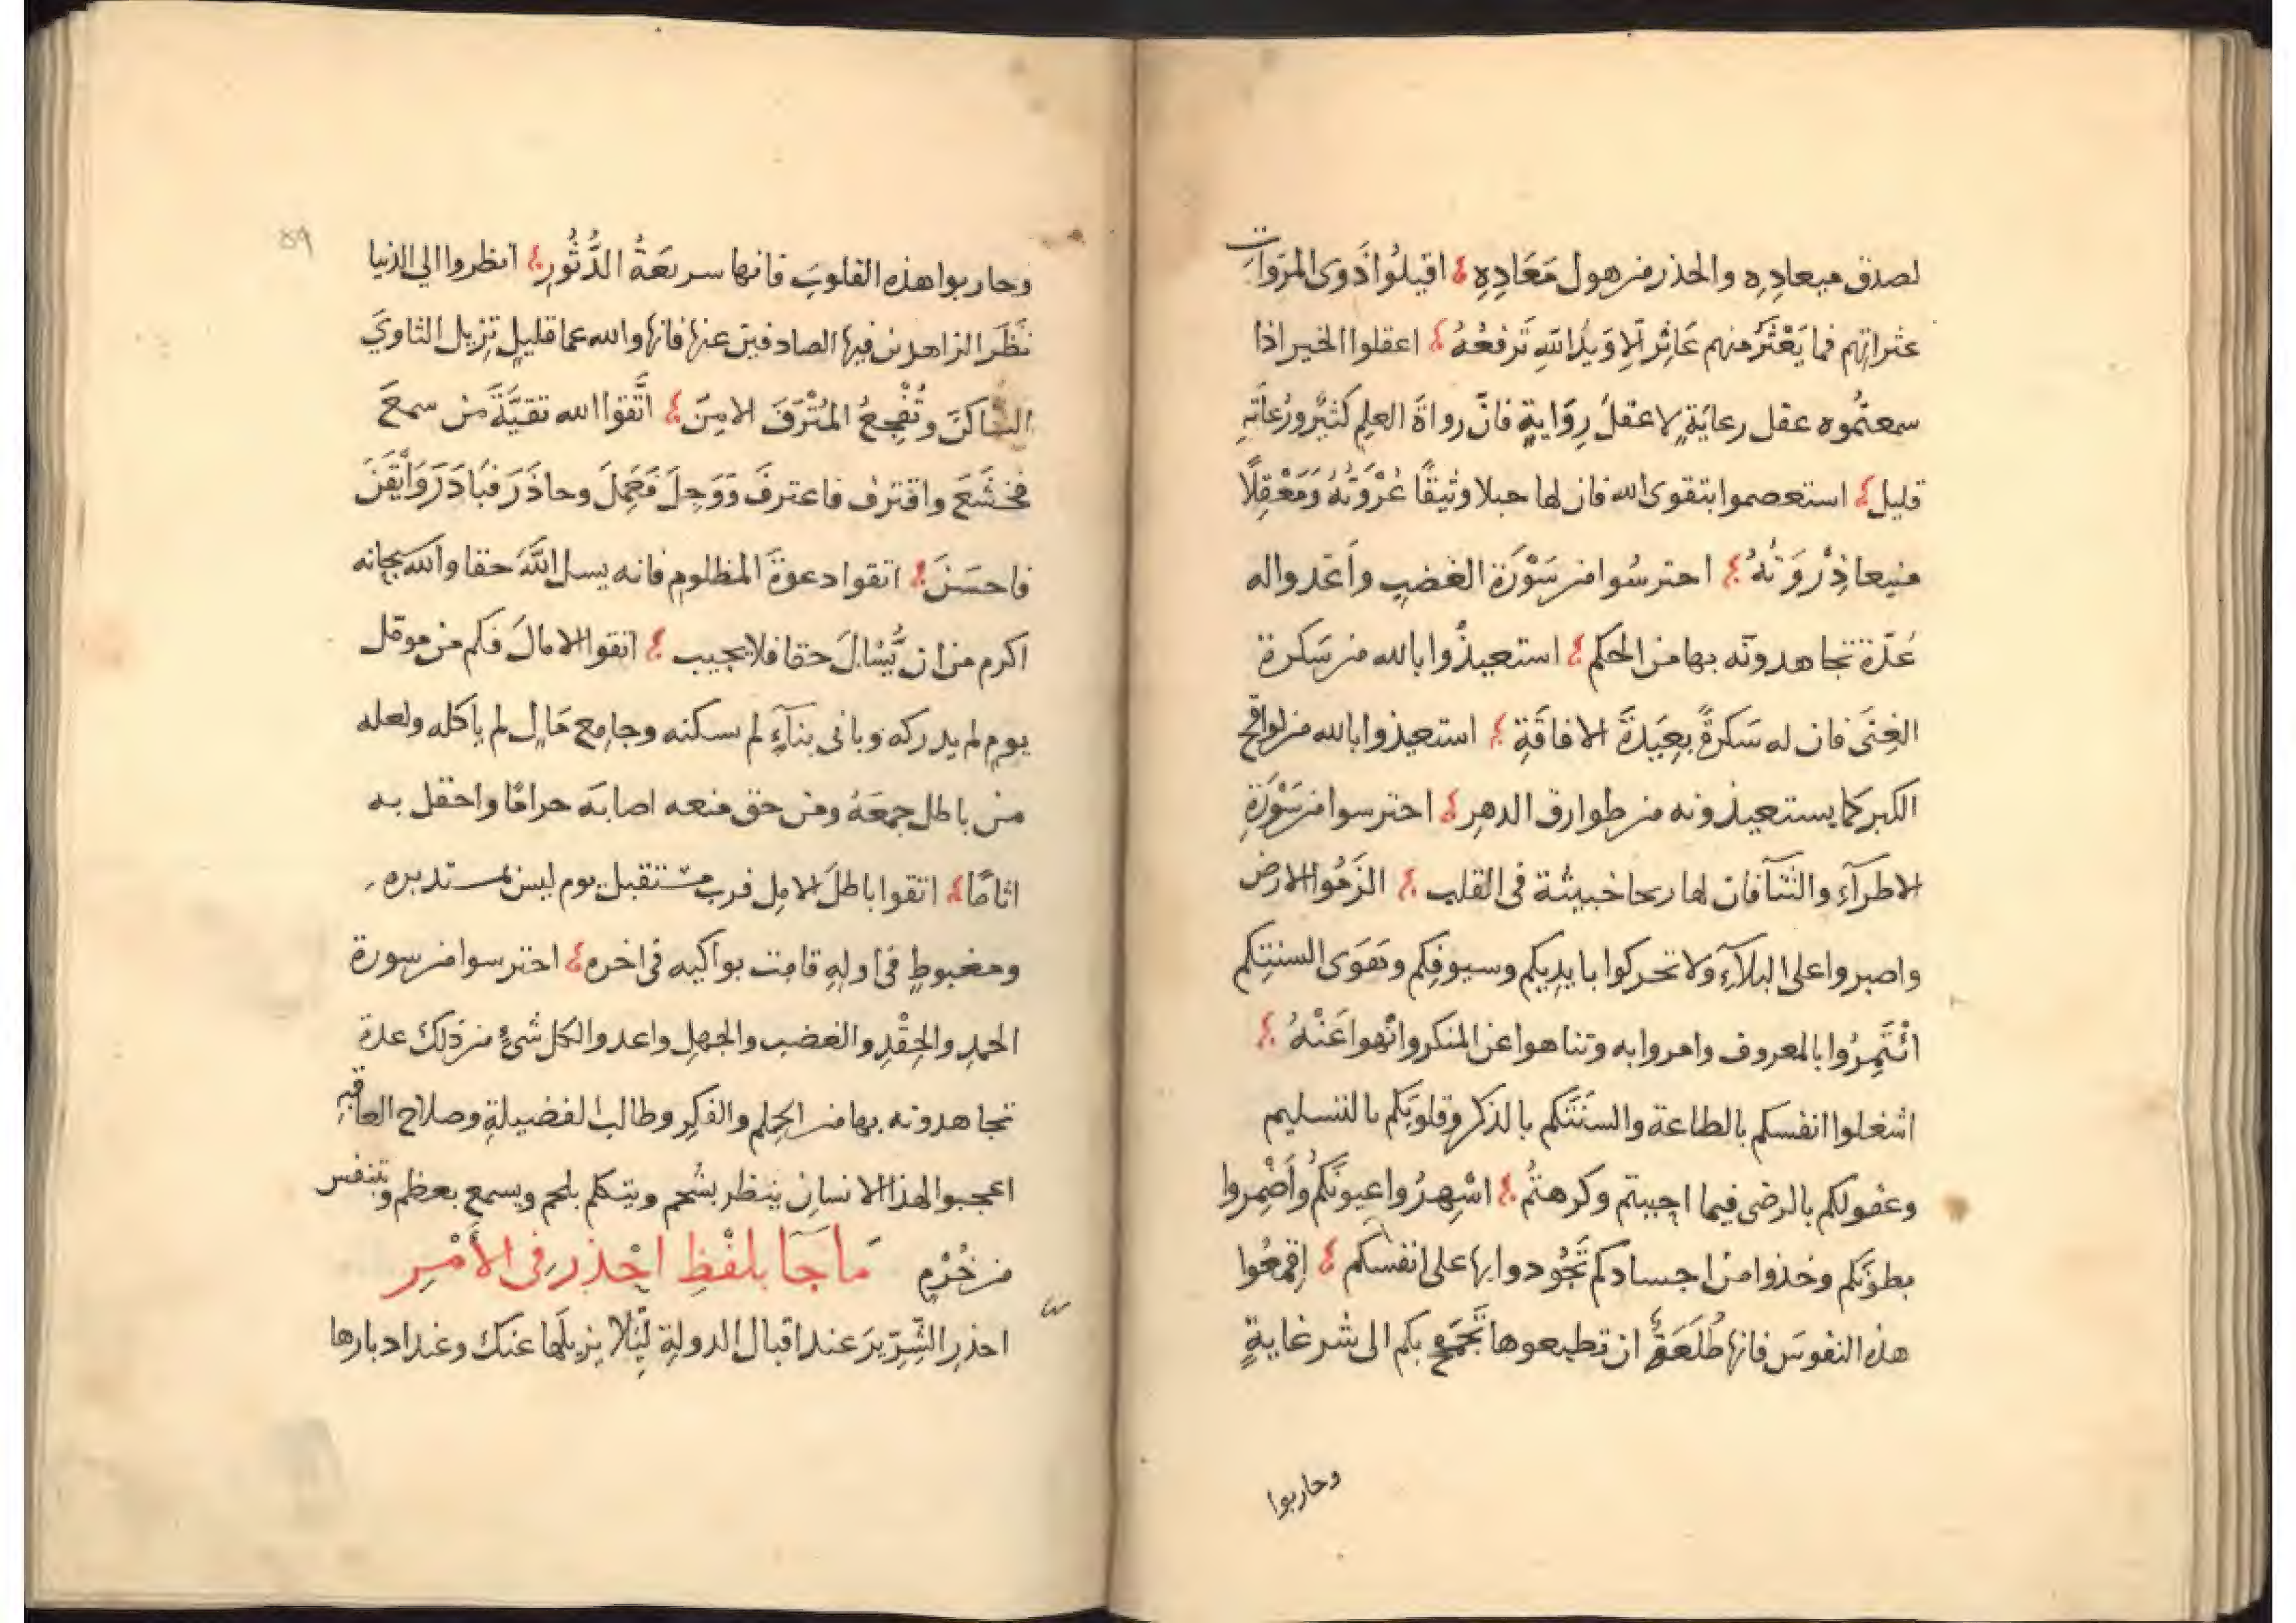 لصدق ميعاده والحذر من هول مَعَادِهِ اقيلُوا ذَوى المرَوات
عثراتهم فما يَعْثُرُ منهم عَاثِر اِلا وَيَدُ اللهِ تَرفعُهُ اعقلوا الخير اذا
سمعتُموه عقل رعايَةٍ لا عقلَ رِوَايةٍ فانّ رواةَ العلمِ كثيْرٌ ورُعاتَهِ
قليل استعصموا بتقوى الله فان لها حبلا وثيقًا عُرْوَتُهُ وَمَعْقِلًا
منيعا ذِرْوَتُهُ احترسُوا من سَوْرَة الغضبِ وأعدوا له
عُدّة تجاهدونه بها من الحكم استعيذُوا بالله من سَكرة
الغِنَى فان له سَكرةً بعِيَدةَ الافاقَةِ استعيذوا بالله من لواقح
الكبر كما يستعيذونه من طوارق الدهرِ احترسوا من سَوْرَةِ
الاطرآءِ والثنآ فان لها ريحا خبيثة فى القلب الزَمُوا الارض
واصبروا على البلآءِ ولا تحركوا بايديكم وسيوفِكم وهَوَى السنتِكم
ائْتَمِرُوا بالمعروف وامروا به وتناهوا عن المنكر وانْهوا عَنْهُ
اشغلوا انفسكم بالطاعة والسنَتَكم بالذكر وقلوبَكم بالتسليم
وعقولكم بالرضى فيما احببتم وكرهتُم اسْهِرُوا عيونَكُم وأَضْمِروا
بطونَكم وخذوا من اجسادكم تَجُودوا بها على انفسكم اقمعُوا
هذه النفوسَ فانها طُلَعَةٌ ان تطيعوها تَجمَح بكم الى شر غايةٍ
وحاربوا
٥٩
وحاربوا هذه القلوبَ فانها سريعَةُ الدُّثُورِ انظروا الى الدنيا
نَظَرَ الزاهدين فيها الصادفين عنها فانها والله عما قليلٍ تِزيل الثاويَ
الساكنَ وتُفْجِعُ المُتْرَفَ الامِنَ اتَّقوا الله تقيَّةَ من سمعَ
فخشَعَ واقترف فاعترفَ وَوَجِلَ فَعَمِلَ وحاذَرَ فَبَادَرَ وَأَيْقَنَ
فاحسَنَ اتقوا دعوةَ المظلوم فانه يسل اللهَ حقا والله سبحانه
اكرم من ان يُسْالَ حقا فلا يجيب اتقوا الامالَ فكم من موَمّل
يومٍ لم يدركه وبانى بنآءٍ لم يسكنه وجامِع مَالٍ لم ياكله ولعله
من باطل جمعَهُ ومن حق منعه اصابَه حرامًا واحتمل به
اثامًا اتقوا باطلَ الامل فرب مستقبل يوم ليس بمستدبره
ومغبوطٍ فى اولهِ قامت بواكيه فى اخره احترسوا من سورة
الحمدِ والحِقْدِ والغضب والجهلِ واعدوا لكل شىءٍ من ذلك عدة
تجاهدونه بها من الحِلم والفكرِ وطالب الفضيلةِ وصلاح العاقبهِ
اعجبوا لهذا الانسانِ ينظر بشحم ويتكلم بلحم ويسمع بعظم وتنفس
من خُرْمٍ مَا جَآ بلفْظِ احْذر فى الأَمْرِ
احذرِ الشِّرِّيرَ عند اقبال الدولةِ لِئلا يزيلَها عنك وعند ادبارها